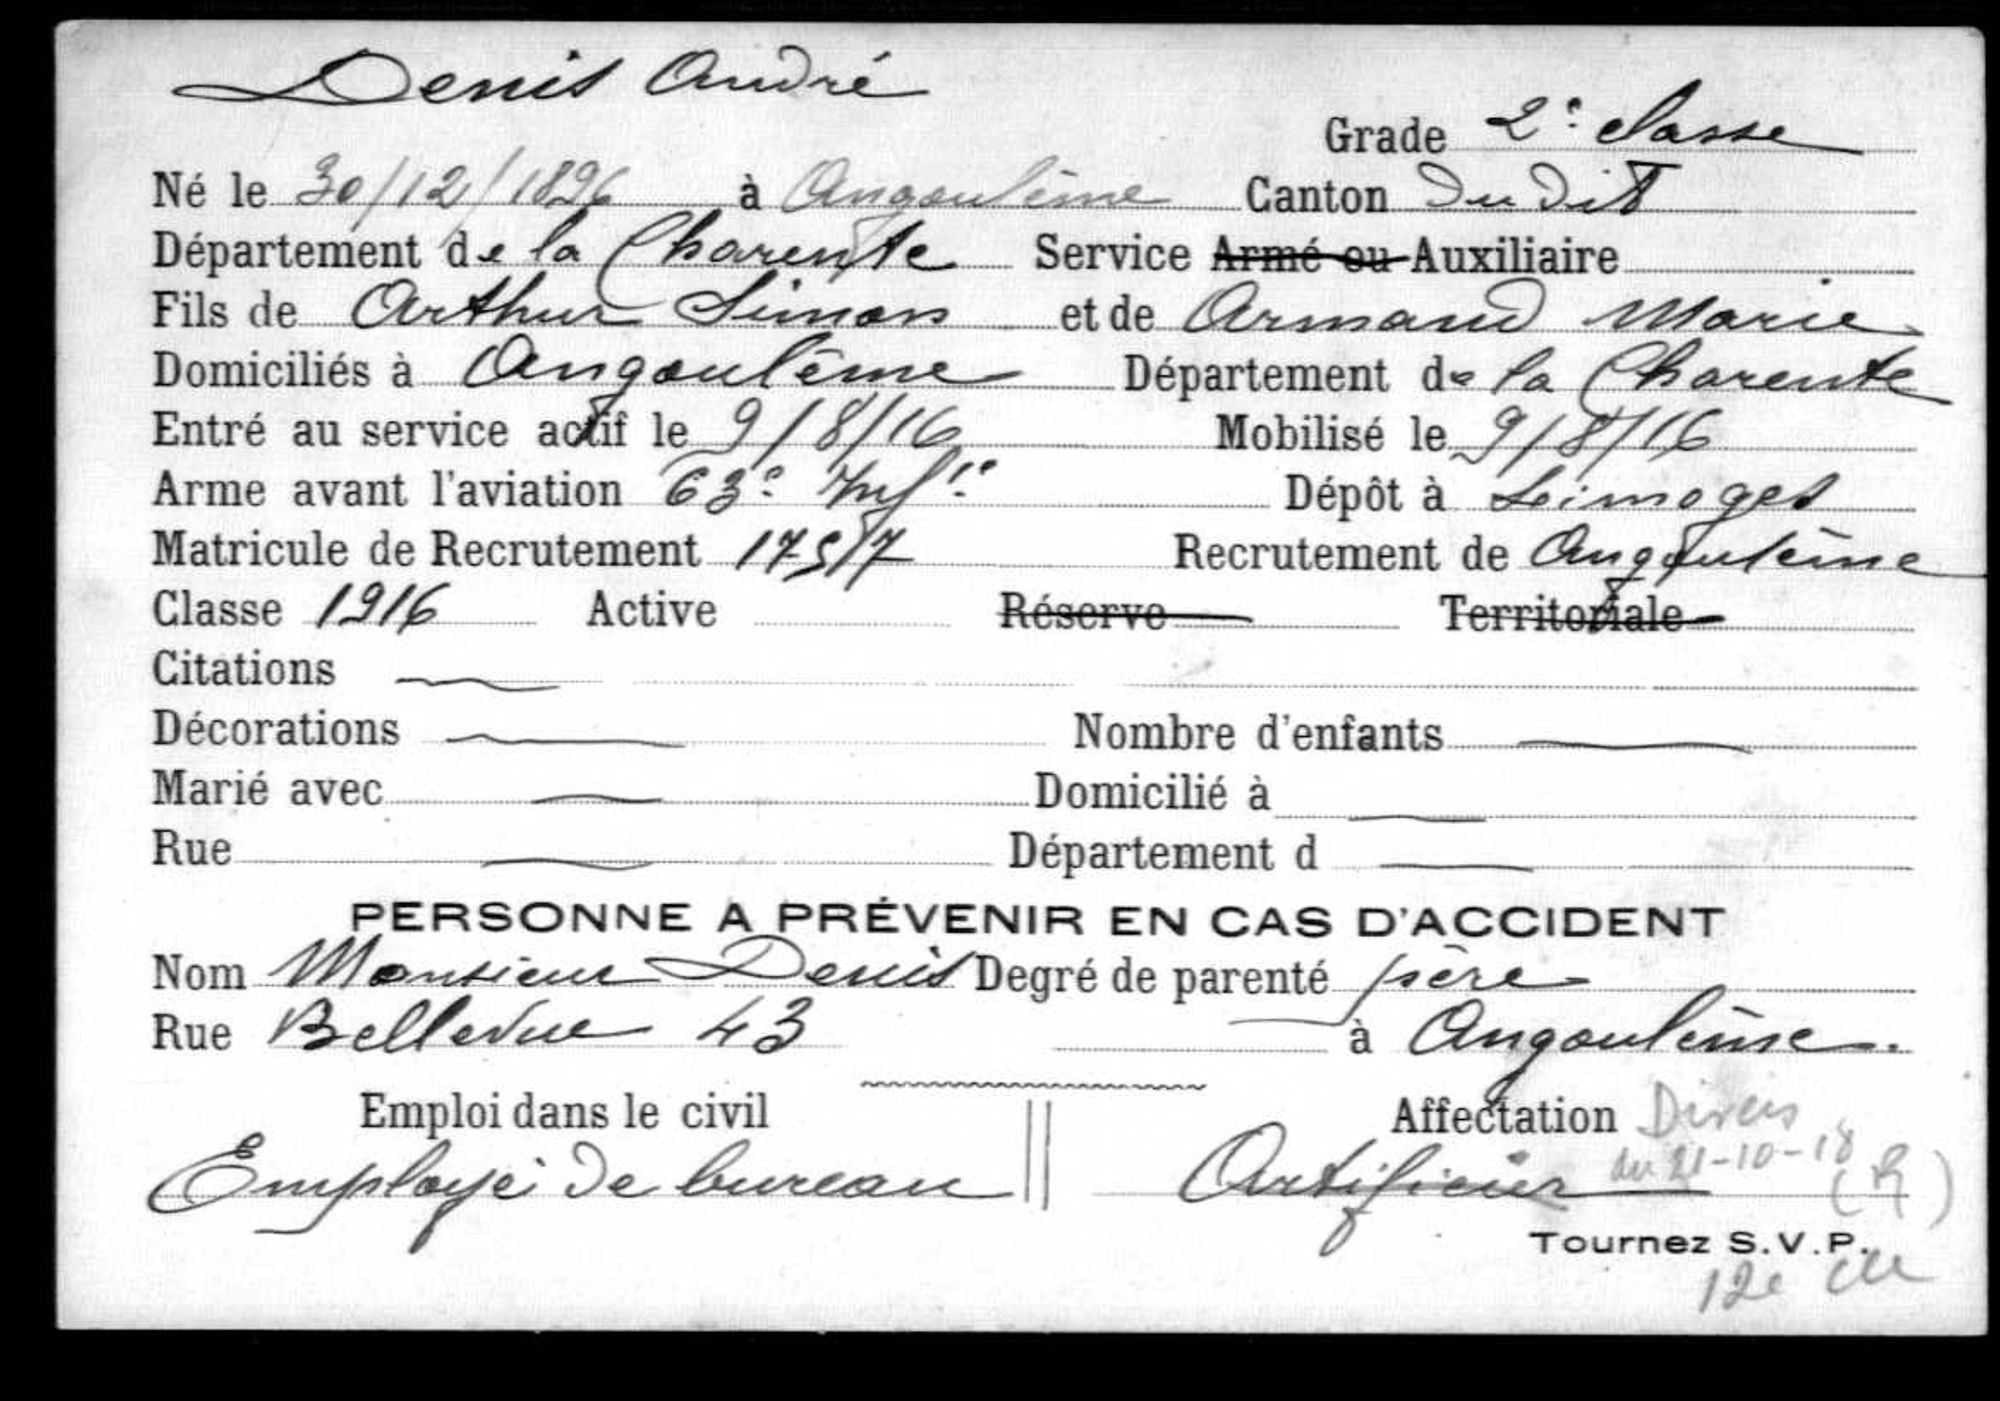 Denis André
Grade 2e classe
Né le 30/12/1896 à Angoulême Canton dudit
Département de la Charente Service Armé ou Auxiliaire
Fils de Arthur Simon et de Armand Marie
Domiciliés à Angoulême Département de la Charente
Entré au service actif le 9/8/16 Mobilisé le 9/8/16
Arme avant l'aviation 63e Infie Dépôt à Limoges
Matricule de Recrutement Recrutement de Angoulême
Classe 1916 Active Réserve Territoriale
Citations
Décorations Nombre d'enfants
Marié avec Domicilié à
Rue Département d
PERSONNE A PRÉVENIR EN CAS D'ACCIDENT
Nom Monsieur Denis Degré de parenté père
Rue Bellevue 43 à Angoulême.
Emploi dans le civil Affectation Divers
Employé de bureau Artificier du 21-10-18 (R)
Tournez S.V.P.
12e Cie